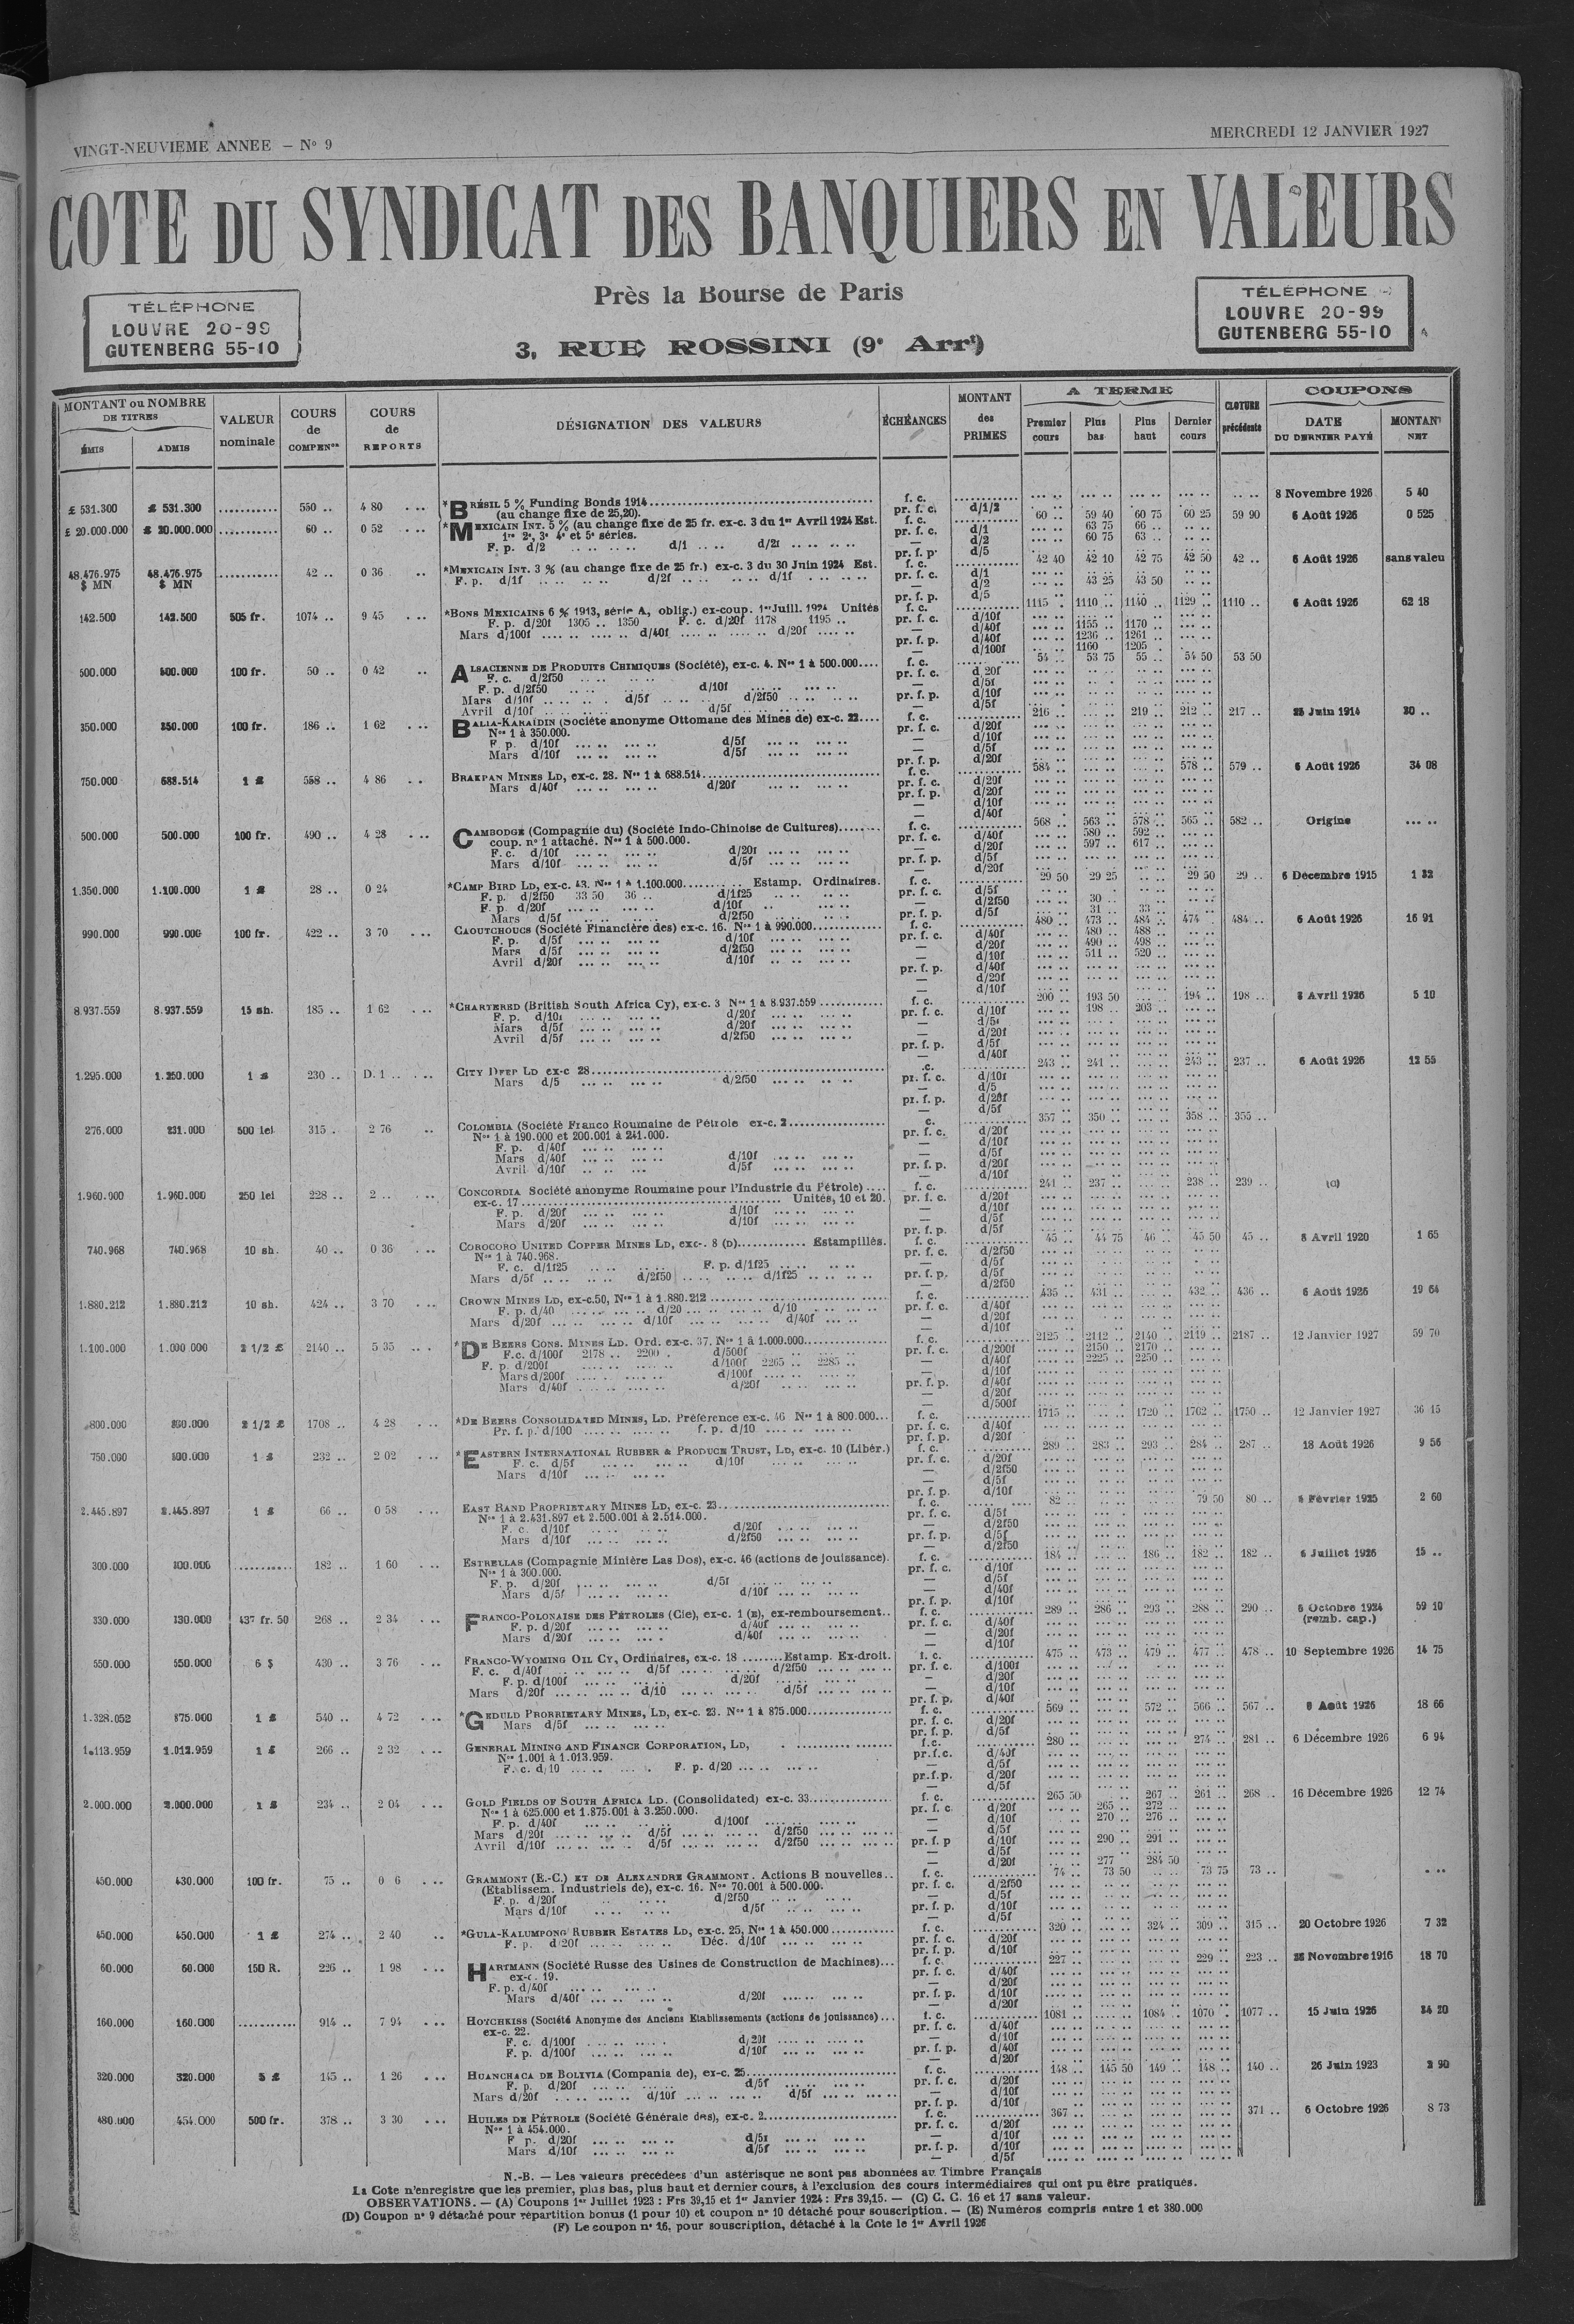 VINGT-NEUVIEME ANNEE — N° 9
MERCREDI 12 JANVIER 1927
COTE DU SYNDICAT DES BANQUIERS EN VALEURS
Près la Bourse de Paris
3, RUE ROSSINI (9e Arrt)
TÉLÉPHONE
LOUVRE 20-99
GUTENBERG 55-10
TÉLÉPHONE
LOUVRE 20-99
GUTENBERG 55-10
MONTANT ou NOMBRE DE TITRES
ÉMIS
ADMIS
VALEUR nominale
COURS de COMPENon
COURS de REPORTS
DÉSIGNATION DES VALEURS
ÉCHÉANCES
MONTANT des PRIMES
A TERME
Premier cours
Plus bas
Plus haut
Dernier cours
CLOTURE précédente
COUPONS
DATE DU DERNIER PAYÉ
MONTANT NET
£ 531.300 £ 531.300 550 .. 4 80 *BRÉSIL 5 % Funding Bonds 1914 f. c. 8 Novembre 1926 5 40
(au change fixe de 25,20). pr. f. c. d/1/2
£ 20.000.000 £ 20.000.000 60 .. 0 52 *MEXICAIN INT. 5 % (au change fixe de 25 fr. ex-c. 3 du 1er Avril 1924 Est. f. c. 60 .. 59 40 60 75 60 25 59 90 6 Août 1926 0 525
1re 2e, 3e 4e et 5e séries. pr. f. c. d/1 63 75 66 ..
F. p. d/2 d/1 d/2f — d/2 60 75 63 ..
pr. f. p. d/5
48.476.975 $ MN 48.476.975 $ MN 42 .. 0 36 *MEXICAIN INT. 3 % (au change fixe de 25 fr.) ex-c. 3 du 30 Juin 1924 Est. f. c. 42 40 42 10 42 75 42 50 42 .. 6 Août 1926 sans valeu
F. p. d/1f d/2f d/1f pr. f. c. d/1
— d/2 43 25 43 50
pr. f. p. d/5
142.500 142.500 505 fr. 1074 .. 9 45 *BONS MEXICAINS 6 % 1913, série A, oblig.) ex-coup. 1er Juill. 1924 Unités f. c. 1115 . 1110 .. 1140 .. 1129 .. 1110 .. 6 Août 1926 62 18
F. p. d/20f 1305 .. 1350 F. c. d/20f 1178 1195 .. pr. f. c. d/10f
Mars d/100f d/40f d/20f — d/40f 1155 1170 ..
pr. f. p. d/40f 1236 .. 1261 ..
— d/100f 1160 1205 .
500.000 500.000 100 fr. 50 .. 0 42 ALSACIENNE DE PRODUITS CHIMIQUES (Société), ex-c. 4. Nos 1 à 500.000 f. c. 54 .. 53 75 55 .. 54 50 53 50
F. c. d/2f50 pr. f. c. d 20f
F. p. d/2f50 d/10f — d/5f
Mars d/10f d/5f d/2f50 pr. f. p. d/10f
Avril d/10f d/5f — d/5f
350.000 350.000 100 fr. 186 .. 1 62 BALIA-KARAÏDIN (Société anonyme Ottomane des Mines de) ex-c. 22 f. c. 216 219 .. 212 .. 217 .. 25 Juin 1914 30 ..
Nos 1 à 350.000. pr. f. c. d/20f
F. p. d/10f d/5f — d/10f
Mars d/10f d/5f — d/5f
pr. f. p. d/20f
750.000 688.514 1 £ 558 .. 4 86 BRAKPAN MINES LD, ex-c. 28. Nos 1 à 688.514 f. c. 584 .. 578 .. 579 .. 6 Août 1926 34 08
Mars d/40f d/20f pr. f. c. d/20f
pr. f. p. d/20f
— d/10f
— d/40f
500.000 500.000 100 fr. 490 .. 4 28 CAMBODGE (Compagnie du) (Société Indo-Chinoise de Cultures) f. c. 568 .. 563 .. 578 .. 565 .. 582 .. Origine
coup. n° 1 attaché. Nos 1 à 500.000. pr. f. c. d/40f 580 .. 592 ..
F. c. d/10f d/20f — d/20f 597 .. 617 ..
Mars d/10f d/5f pr. f. p. d/5f
— d/20f
1.350.000 1.100.000 1 £ 28 .. 0 24 *CAMP BIRD LD, ex-c. 43. Nos 1 à 1.100.000 Estamp. Ordinaires. f. c. 29 50 29 25 29 50 29 .. 6 Décembre 1915 1 32
F. p. d/2f50 33 50 36 .. d/1f25 pr. f. c. d/5f
F. p. d/20f d/10f — d/2f50 30 ..
Mars d/5f d/2f50 pr. f. p. d/5f 31 .. 33 ..
990.000 990.000 100 fr. 422 .. 3 70 CAOUTCHOUCS (Société Financière des) ex-c. 16. Nos 1 à 990.000 f. c. 480 .. 473 .. 484 .. 474 .. 484 .. 6 Août 1926 16 91
F. p. d/5f d/10f pr. f. c. d/40f 480 .. 488 ..
Mars d/5f d/2f50 — d/20f 490 .. 498 ..
Avril d/20f d/10f — d/10f 511 .. 520 ..
pr. f. p. d/40f
— d/20f
— d/10f
8.937.559 8.937.559 15 sh. 185 .. 1 62 *CHARTERED (British South Africa Cy), ex-c. 3 Nos 1 à 8.937.559 f. c. 200 .. 193 50 194 .. 198 .. 8 Avril 1926 5 10
F. p. d/10f d/20f pr. f. c. d/10f 198 .. 203 ..
Mars d/5f d/20f — d/5f
Avril d/5f d/2f50 — d/20f
pr. f. p. d/5f
— d/40f
1.295.000 1.250.000 1 £ 230 .. D. 1 .. CITY DEEP LD ex-c 28 .c. 243 .. 241 .. 243 .. 237 .. 6 Août 1926 12 55
Mars d/5 d/2f50 pr. f. c. d/10f
— d/5
pr. f. p. d/20f
— d/5f
276.000 231.000 500 lei 315 . 2 76 COLOMBIA (Société Franco Roumaine de Pétrole ex-c. 2 c. 357 .. 350 .. 358 .. 355 ..
Nos 1 à 190.000 et 200.001 à 241.000. pr. f. c. d/20f
F. p. d/40f — d/10f
Mars d/40f d/10f — d/5f
Avril d/10f d/5f pr. f. p. d/20f
— d/10f
1.960.900 1.960.000 250 lei 228 .. 2 .. CONCORDIA Société anonyme Roumaine pour l'Industrie du Pétrole) f. c. 241 .. 237 .. 238 .. 239 .. (C)
ex-c. 17 Unités, 10 et 20. pr. f. c. d/20f
F. p. d/20f d/10f — d/10f
Mars d/20f d/10f — d/5f
pr. f. p. d/5f
740.968 740.968 10 sh. 40 .. 0 36 COROCORO UNITED COPPER MINES LD, exc-. 8 (D) Estampillés. f. c. 45 .. 44 75 46 .. 45 50 45 .. 8 Avril 1920 1 65
Nos 1 à 740.968. pr. f. c. d/2f50
F. c. d/1f25 F. p. d/1f25 — d/5f
Mars d/5f d/2f50 d/1f25 pr. f. p. d/5f
— d/2f50
1.880.212 1.880.212 10 sh. 424 .. 3 70 CROWN MINES LD, ex-c.50, Nos 1 à 1.880.212 f. c. 435 .. 431 .. 432 .. 436 .. 6 Août 1926 19 64
F. p. d/40 d/20 d/10 pr. f. c. d/40f
Mars d/20f d/10f d/40f — d/20f
— d/10f
1.100.000 1.000 000 2 1/2 £ 2140 .. 5 35 *DE BEERS CONS. MINES LD. Ord. ex-c. 37. Nos 1 à 1.000.000 f. c. 2125 .. 2112 .. 2140 .. 2119 .. 2187 .. 12 Janvier 1927 59 70
F.c. d/100f 2178 .. 2200 . d/500f pr. f. c. d/200f 2150 .. 2170 ..
F. p. d/200f d/100f 2265 .. 2285 .. — d/40f 2225 .. 2250 ..
Mars d/200f d/100f — d/10f
Mars d/40f d/20f pr. f. p. d/40f
— d/20f
— d/500f
800.000 800.000 2 1/2 £ 1708 .. 4 28 *DE BEERS CONSOLIDATED MINES, LD. Préférence ex-c. 46 Nos 1 à 800.000 f. c. 1715 .. 1720 .. 1702 .. 1750 .. 12 Janvier 1927 36 15
Pr. f. p. d/100 f. p. d/10 pr. f. c. d/40f
pr. f. p. d/20f
750.000 500.000 1 £ 232 .. 2 02 *EASTERN INTERNATIONAL RUBBER & PRODUCE TRUST, LD, ex-c. 10 (Libér.) f. c. 289 .. 283 .. 293 .. 284 .. 287 .. 18 Août 1926 9 56
F. c. d/5f d/10f pr. f. c. d/20f
Mars d/10f — d/2f50
— d/5f
pr. f. p. d/10f
2.445.897 2.445.897 1 £ 66 .. 0 58 EAST RAND PROPRIETARY MINES LD, ex-c. 23 f. c. 82 .. 79 50 80 .. 6 Février 1925 2 60
Nos 1 à 2.431.897 et 2.500.001 à 2.514.000. pr. f. c. d/5f
F. c. d/10f d/20f — d/2f50
Mars d/10f d/2f50 pr. f. p. d/5f
— d/2f50
300.000 300.000 182 .. 1 60 ESTRELLAS (Compagnie Minière Las Dos), ex-c. 46 (actions de jouissance). f. c. 184 .. 186 .. 182 .. 182 .. 6 Juillet 1926 15 ..
Nos 1 à 300.000. pr. f. c. d/10f
F. p. d/20f d/5f — d/5f
Mars d/5f d/10f — d/40f
pr. f. p. d/10f
330.000 330.000 437 fr. 50 268 .. 2 34 FRANCO-POLONAISE DES PÉTROLES (Cie), ex-c. 1 (E), ex-remboursement.. f. c. 289 .. 286 .. 293 .. 288 .. 290 .. 6 Octobre 1924 59 10
F. p. d/20f d/40f pr. f. c. d/40f (remb. cap.)
Mars d/20f d/40f — d/20f
— d/10f
550.000 550.000 6 $ 430 .. 3 76 FRANCO-WYOMING OIL CY, Ordinaires, ex-c. 18 Estamp. Ex-droit. f. c. 475 .. 473 .. 479 .. 477 .. 478 .. 10 Septembre 1926 14 75
F. c. d/40f d/5f d/2f50 pr. f. c. d/100f
F. p. d/100f d/20f — d/20f
Mars d/20f d/10 d/5f — d/10f
pr. f. p. d/40f
1.328.052 875.000 1 £ 540 .. 4 72 *GEDULD PRORRIETARY MINES, LD, ex-c. 23. Nos 1 à 875.000 f. c. 569 .. 572 .. 566 .. 567 .. 6 Août 1926 18 66
Mars d/5f pr. f. c. d/20f
pr. f. p. d/5f
1.113.959 1.013.959 1 £ 266 .. 2 32 GENERAL MINING AND FINANCE CORPORATION, LD, f.c. 280 .. 274 .. 281 .. 6 Décembre 1926 6 94
Nos 1.001 à 1.013.959. pr.f.c. d/40f
F. c. d/10 F. p. d/20 — d/5f
pr.f.p. d/20f
— d/5f
2.000.000 2.000.000 1 £ 234 .. 2 04 GOLD FIELDS OF SOUTH AFRICA LD. (Consolidated) ex-c. 33 f. c. 265 50 267 .. 261 .. 268 .. 16 Décembre 1926 12 74
Nos 1 à 625.000 et 1.875.001 à 3.250.000. pr. f. c d/20f 265 .. 272 ..
F. p. d/40f d/100f — d/10f 270 .. 276 ..
Mars d/20f d/5f d/2f50 — d/5f
Avril d/10f d/5f d/2f50 pr. f. p d/10f 290 .. 291 ..
— d/5f
— d/20f 277 284 50
450.000 430.000 100 fr. 75 .. 0 6 GRAMMONT (E.-C.) ET DE ALEXANDRE GRAMMONT. Actions B nouvelles.. f. c. 74 .. 73 50 73 75 73 ..
(Etablissem. Industriels de), ex-c. 16. Nos 70.001 à 500.000. pr. f. c. d/2f50
F. p. d/20f d/2f50 — d/5f
Mars d/10f d/5f pr. f. p. d/10f
— d/5f
450.000 450.000 1 £ 274 .. 2 40 *GULA-KALUMPONG RUBBER ESTATES LD, ex-c. 25, Nos 1 à 450.000 f. c. 320 .. 324 .. 309 .. 315 .. 20 Octobre 1926 7 32
F. p. d/20f Déc. d/10f pr. f. c. d/20f
pr. f. p. d/10f
60.000 60.000 150 R. 226 .. 1 98 HARTMANN (Société Russe des Usines de Construction de Machines) f. c. 227 .. 229 .. 223 .. Novembre 1916 18 70
ex-c. 19. pr. f. c. d/40f
F. p. d/40f — d/20f
Mars d/40f d/20f pr. f. p. d/10f
— d/20f
160.000 160.000 914 .. 7 94 HOTCHKISS (Société Anonyme des Anciens Etablissements (actions de jouissance) f. c. 1081 .. 1084 .. 1070 .. 1077 .. 15 Juin 1926 34 20
ex-c. 22. pr. f. c. d/40f
F. c. d/100f d/20f — d/10f
F. p. d/100f d/10f pr. f. p. d/40f
— d/20f
320.000 320.000 5 £ 145 .. 1 26 HUANCHACA DE BOLIVIA (Compania de), ex-c. 25 f. c. 148 .. 145 50 149 .. 148 .. 140 .. 26 Juin 1923 2 90
F. p. d/20f d/5f pr. f. c. d/20f
Mars d/20f d/10f d/5f — d/10f
pr. f. p. d/10f
480.000 454.000 500 fr. 378 .. 3 30 HUILES DE PÉTROLE (Société Générale des), ex-c. 2 f. c. 367 .. 371 .. 6 Octobre 1926 8 73
Nos 1 à 454.000. pr. f. c. d/20f
F p. d/20f d/5f — d/10f
Mars d/10f d/5f pr. f. p. d/10f
— d/5f
N.-B. — Les valeurs précédees d'un astérisque ne sont pas abonnées au Timbre Français
La Cote n'enregistre que les premier, plus bas, plus haut et dernier cours, à l'exclusion des cours intermédiaires qui ont pu être pratiqués.
OBSERVATIONS. — (A) Coupons 1er Juillet 1923 : Frs 39,15 et 1er Janvier 1924 : Frs 39,15. — (C) C. C. 16 et 17 sans valeur.
(D) Coupon n° 9 détaché pour répartition bonus (1 pour 10) et coupon n° 10 détaché pour souscription. — (E) Numéros compris entre 1 et 380.000
(F) Le coupon n° 16, pour souscription, détaché à la Cote le 1er Avril 1926